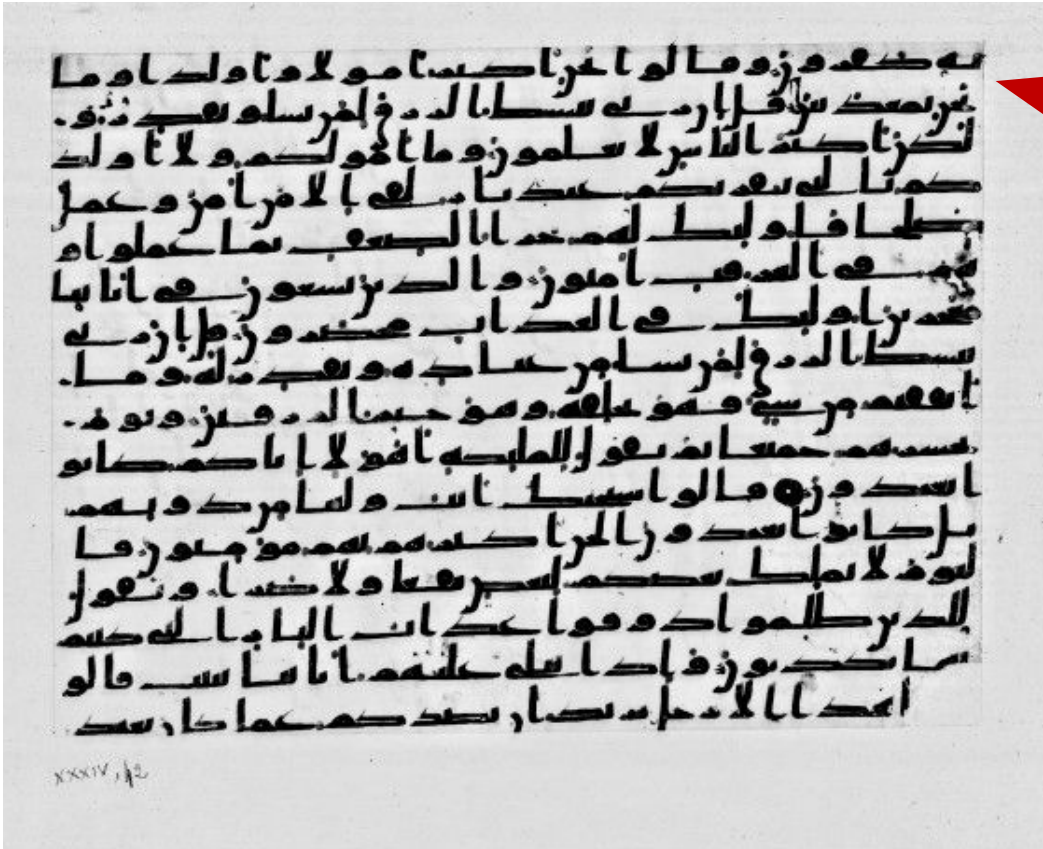 به كفرون وقالوا نحن اكثر امولا واولدا وما
نحن بمعذبين قل ان ربي يبسط الرزق لمن يشا ويقدر و
لكن اكثر الناس لا يعلمون وما امولكم ولا اولد
كم بالتي تقربكم عندنا زلفى الا من امن وعمل
صلحا فاوليك لهم جزا الضعف بما عملوا و
هم في الغرفت امنون والذين يسعون في ايتنا
معجزين اوليك في العذاب محضرون قل ان ربي
يبسط الرزق لمن يشا من عباده ويقدر له وما
انفقتم من شي فهو يخلفه وهو خير الرزقين ويوم
نحشرهم جميعا ثم نقول للمليكه اهولا اياكم كانو
ا يعبدون قالوا سبحنك انت ولينا من دونهم
بل كانوا يعبدون الجن اكثرهم بهم مومنون فا
ليوم لا يملك بعضكم لبعض نفعا ولا ضرا ونقول
للذين ظلموا ذوقوا عذاب النار التي كنتم
بها تكذبون واذا تتلى عليهم ايتنا بينت قالو
ا ما هذا الا رجل يريد ان يصدكم عما كان يعبد
XXXIV, 42